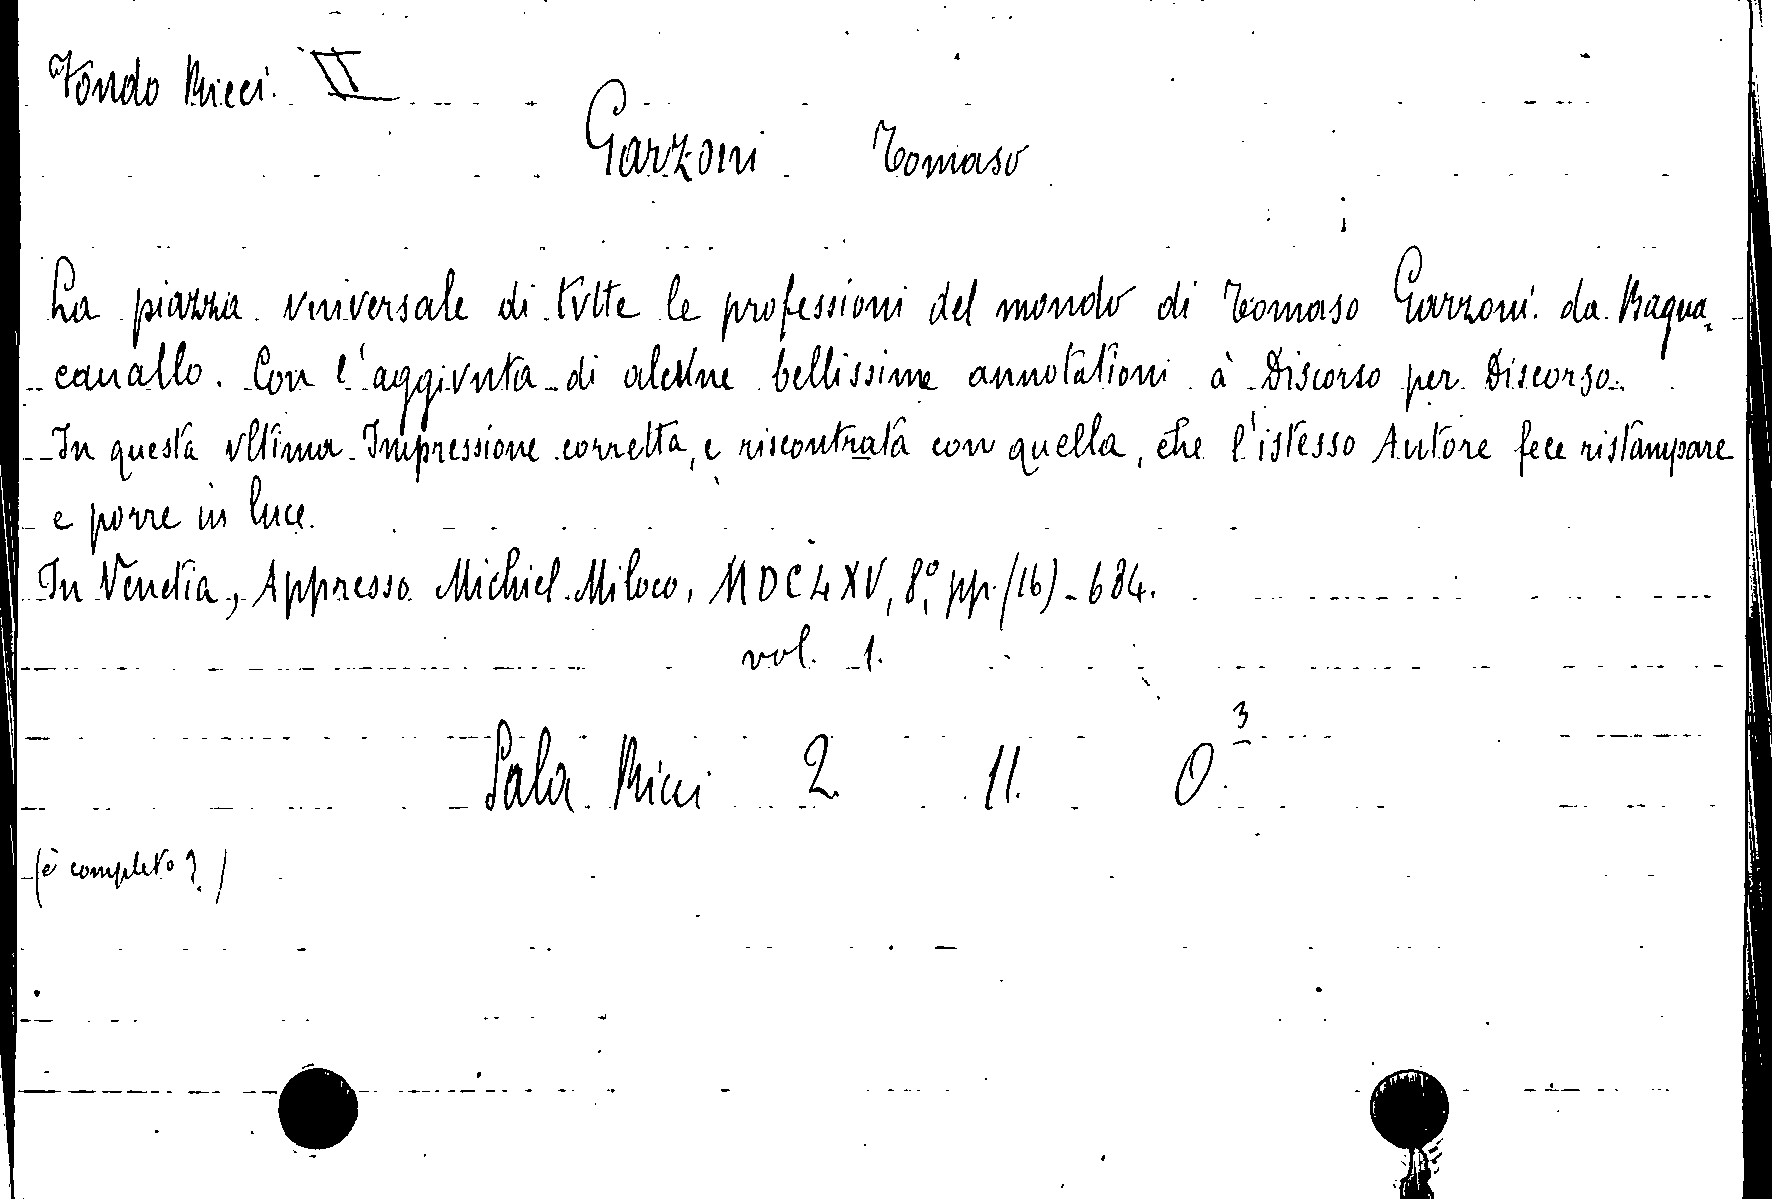 Fondo Ricci. II
Garzoni Tomaso
La piazza vniversale di tvtte le professioni del mondo di Tomaso Garzoni da Bagna
cauallo. Con l'aggivnta di alcvne bellissime annotationi à Discorso per Discorso.
In questa vltima Impressione corretta, e riscontrata con quella, che l'istesso Autore fece ristampare
e porre in luce.
In Venetia, Appresso Michiel Miloco, MDCLXV, 8º, pp. (16) - 684.
vol. 1.
Sala Ricci 2 11. 0.3
(è completo?)